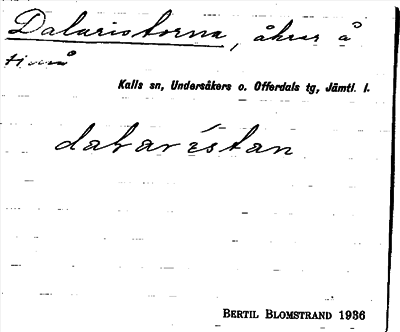 Dalaristorna, åkrar å
Kalls sn, Undersåkers o. Offerdals tg, Jämtl. l.
dalarístan
BERTIL BLOMSTRAND 1936